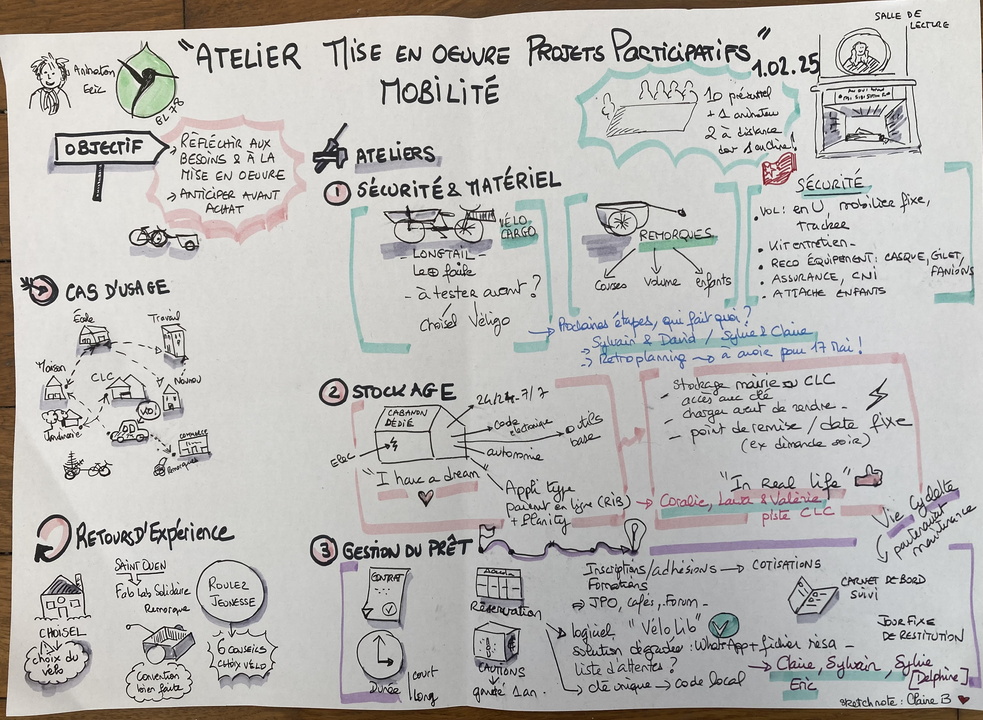 "ATELIER MISE EN OEUVRE PROJETS PARTICIPATIFS"
MOBILITÉ
1.02.25
SALLE DE
LECTURE
Animation
Eric
10 présentiel
+ 1 animateur
2 à distance
OBJECTIF
RÉFLÉCHIR AUX
BESOINS & À LA
MISE EN OEUVRE
ANTICIPER AVANT
ACHAT
ATELIERS
1 SÉCURITÉ & MATÉRIEL
VÉLO
CARGO
LONGTAIL
Le + facile
- à tester avant ?
Choisel Véligo
REMORQUES
Courses
Volume
enfants
SÉCURITÉ
• VOL: en U, mobilier fixe,
tracker
• Kit entretien
• RECO ÉQUIPEMENT: CASQUE, GILET,
FANIONS
• ASSURANCE, CNI
• ATTACHE ENFANTS
→ Prochaines étapes, qui fait quoi ?
Sylvain & David / Sylvie & Claire
→ Retroplanning → à avoir pour 17 Mai !
CAS D'USAGE
École
Travail
Maison
CLC
Jardinerie
VO!
COMMERCE
Remorques
2 STOCKAGE
CABANON
DÉDIÉ
Elec
24/24 - 7/7
Code
électronique
outils
base
autonomie
"I have a dream"
Appli type
paiement en ligne (RIB)
+ Planity
- Stockage mairie ou CLC
accès avec clé
- charger avant de rendre
- point de remise / date fixe
(ex dimanche soir)
"In Real life"
→ Coralie, Laura & Valérie
piste CLC
Vie Cyclette
partenariat
maintenance
RETOURS D'EXPÉRIENCE
CHOISEL
choix du
vélo
SAINT OUEN
Fab Lab Solidaire
Remorque
Convention
bien faite
ROULEZ
JEUNESSE
6 CONSEILS
CHOIX VÉLO
3 GESTION DU PRÊT
CONTRAT
Durée
court
long
Réservation
CAUTIONS
gardée 1 an
Inscriptions/adhésions → COTISATIONS
Formations
⇒ JPO, cafés, Forum
logiciel "Vélo Lib"
solution dégradée: WhatsApp + fichier résa
liste d'attentes ?
→ clé unique → code local
CARNET DE BORD
SUIVI
JOUR FIXE
DE RESTITUTION
→ Claire, Sylvain, Sylvie
Eric
[Delphine]
sketchnote: Claire B